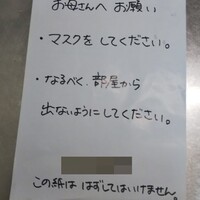 お母さんへ お願い
・マスクをしてください。
・なるべく、部屋から
出ないようにしてください。
この紙は はずしてはいけません。